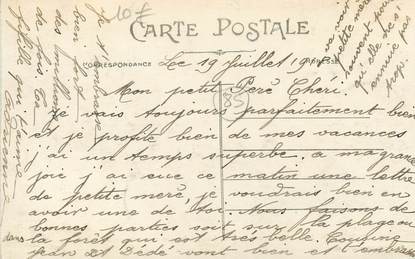 10 F
CARTE POSTALE
CORRESPONDANCE
Le 19 Juillet 19
Mon petit Père Chéri.
(85)
Je vais toujours parfaitement bien
et je profite bien de mes vacances
j'ai un temps superbe. a ma grande
joie j'ai eue ce matin une lettre
de petite mère, je voudrais bien en
avoir une de toi. Nous faisons de
bonnes parties soit sur la plage ou
dans la forêt qui est très belle. Cousine
Jean et Dédé vont bien et
Je t'embrasse
bien fort
des millions
de fois. Ta
fifille qui t'aime
va voir
petite mère
souvent pour
qu'elle ne s'
ennuie pas
trop.